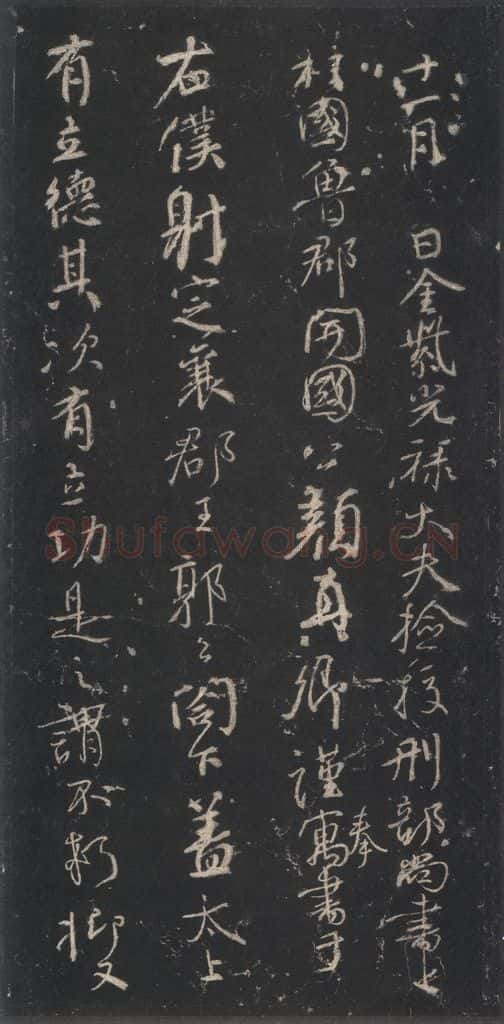 十一月 日金紫光祿大夫檢挍刑部尚書上
柱國魯郡開國公顏真卿謹奉寓書于
右僕射定襄郡王郭公閤下蓋太上
有立德其次有立功是之謂不朽抑又
Shufawang.CN